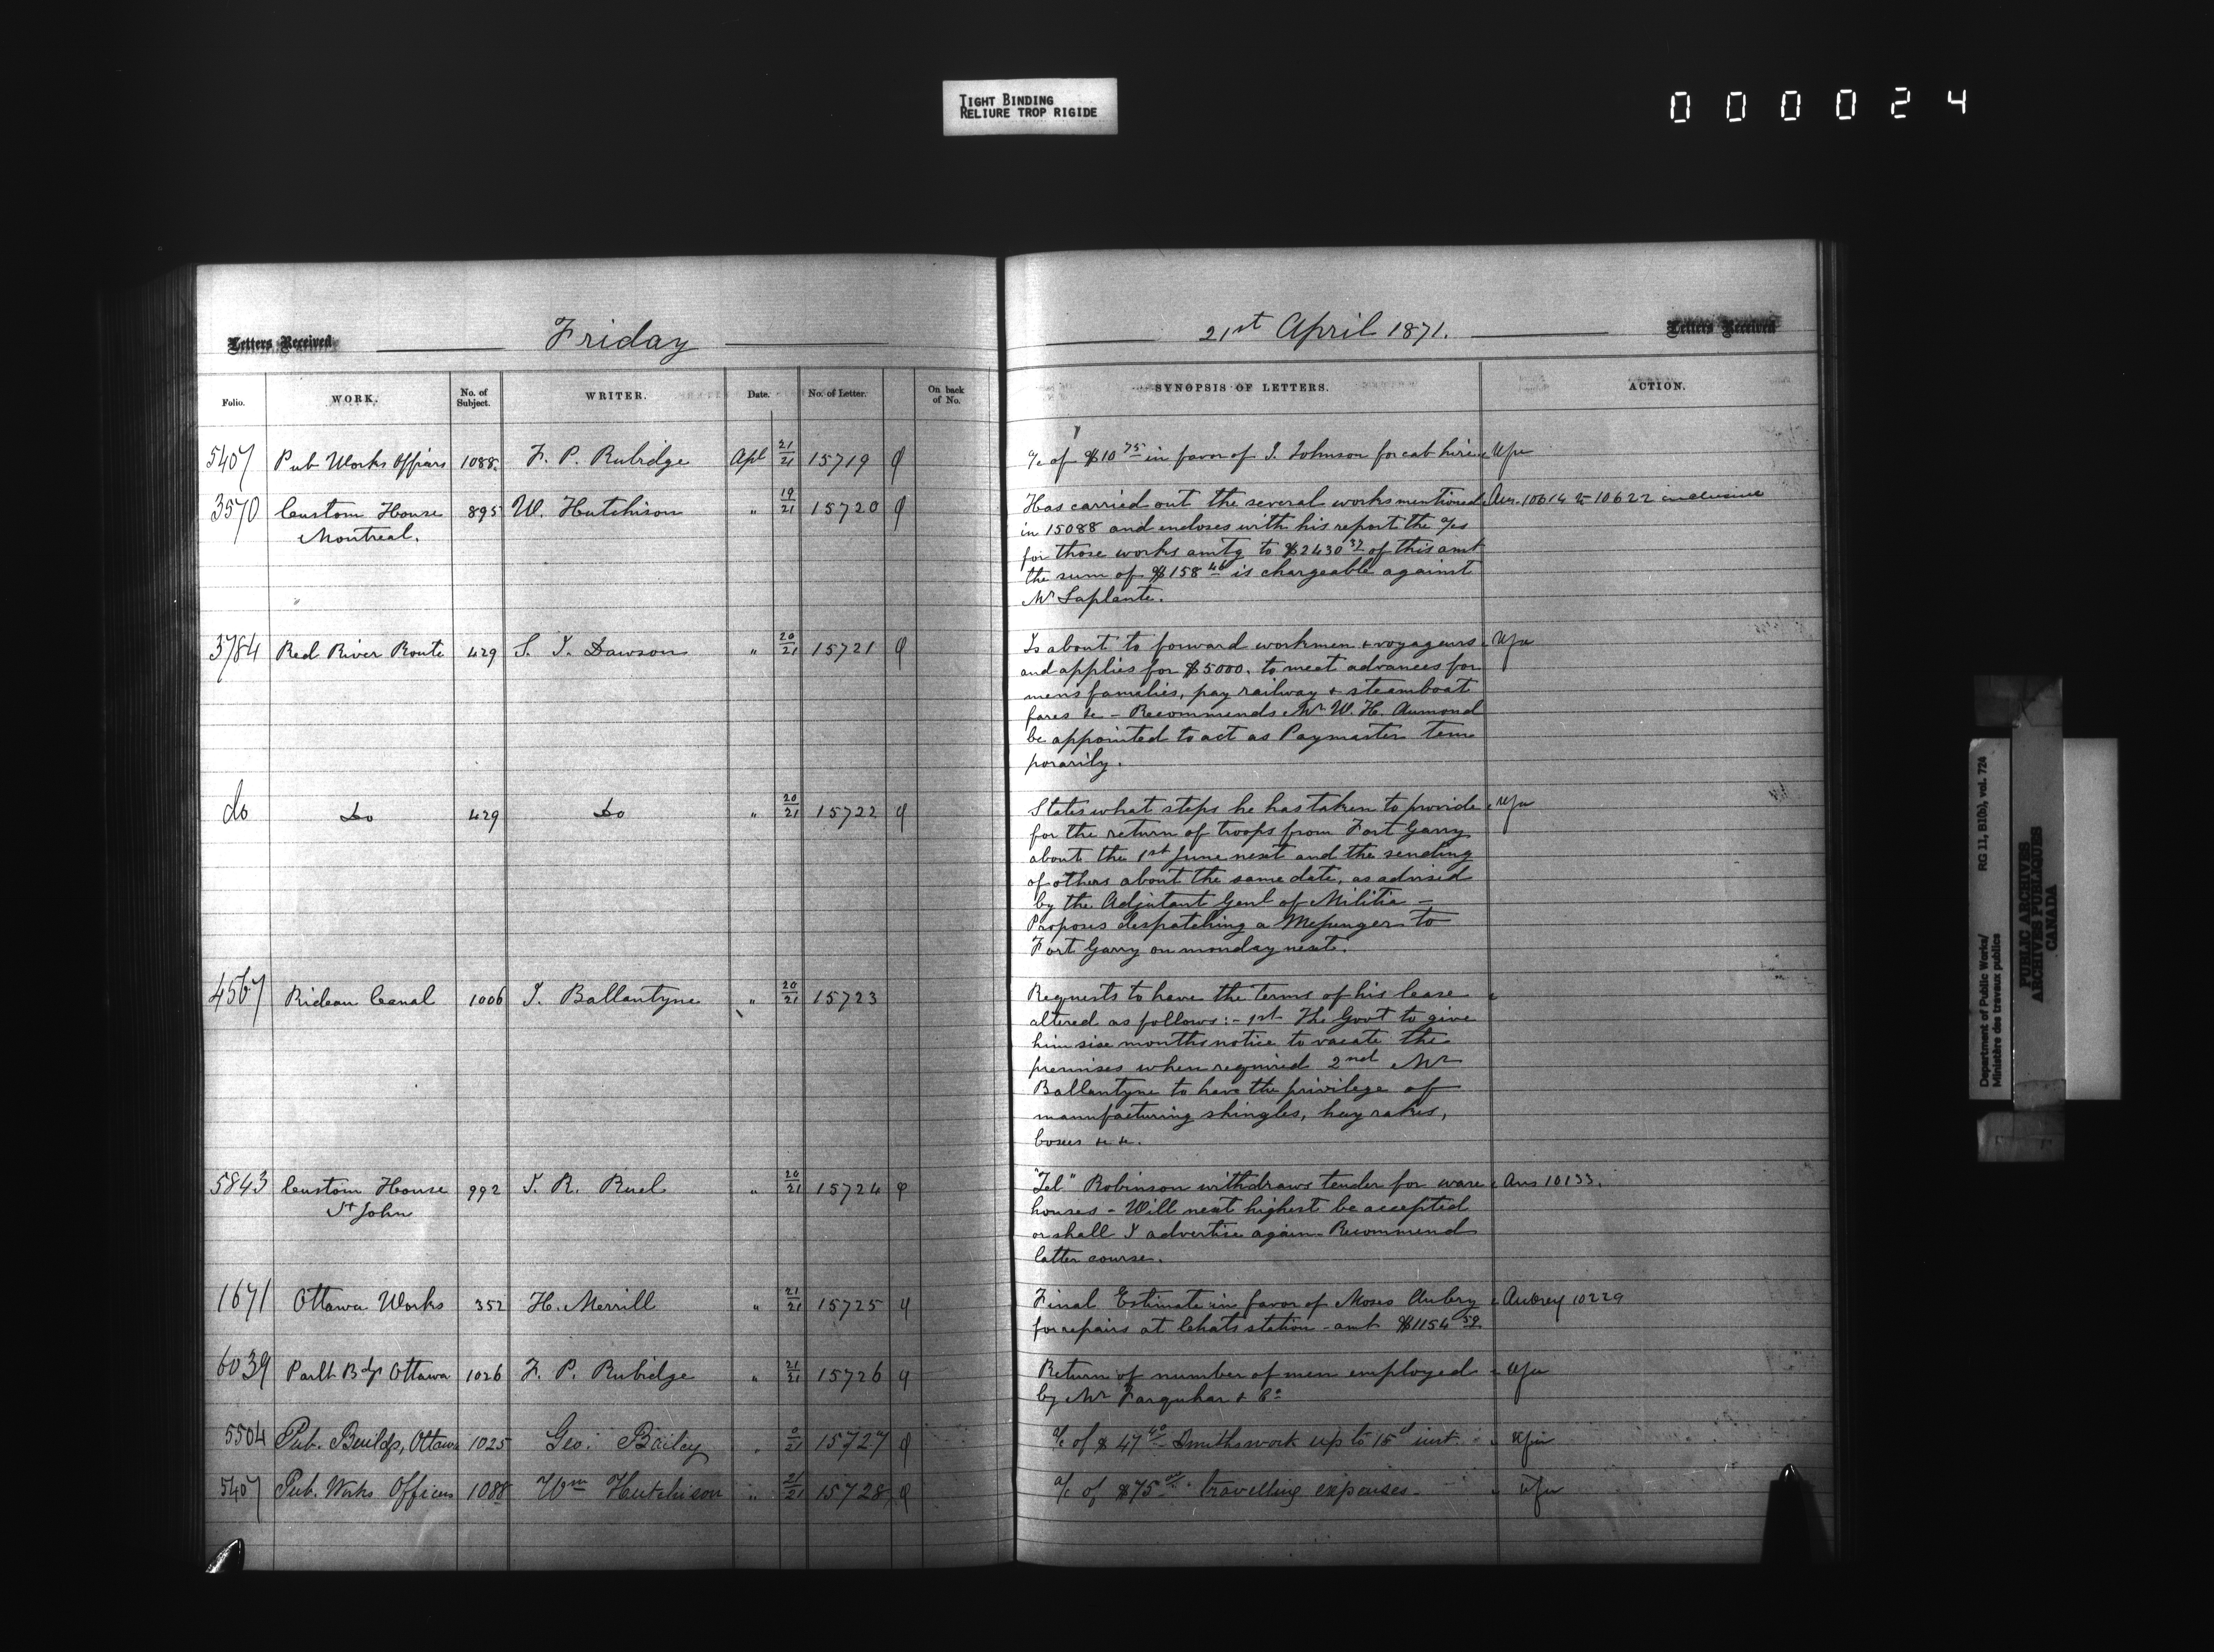 TIGHT BINDING
RELIURE TROP RIGIDE
000024
Letters Received
Friday
21st April 1871.
Letters Received
Folio.
WORK.
No. of Subject.
WRITER.
Date.
No. of Letter.
On back of No.
SYNOPSIS OF LETTERS.
ACTION.
5407 Pub Works Offices 1088 F. P. Rubidge Apl 21/21 15719
a/c of $10 75 in favor of J. Johnson for cab hire
3570 Custom House 895 W. Hutchison " 19/21 15720
Montreal.
Has carried out the several works mentioned Ans. 10614 to 10622 inclusive
in 15088 and encloses with his report the a/cs
for those works amtg to $2430 37 of this amt
the sum of $158 46 is chargeable against
Mr Laplante.
3784 Red River Route 429 S. J. Dawson " 20/21 15721
Is about to forward workmen & voyageurs
and applies for $5000. to meet advances for
mens families, pay railway & steamboat
fares &c - Recommends Mr W. H. Aumond
be appointed to act as Paymaster tem
porarily.
do Do 429 Do " 20/21 15722
States what steps he has taken to provide
for the return of troops from Fort Garry
about the 1st June next and the sending
of others about the same date, as advised
by the Adjutant Genl of Militia -
Proposes despatching a Messenger to
Fort Garry on monday next.
4567 Rideau Canal 1006 J. Ballantyne " 20/21 15723
Requests to have the terms of his lease
altered as follows:- 1st The Govt to give
him six months notice to vacate the
premises when required 2nd Mr
Ballantyne to have the privilege of
manufacturing shingles, hay rakes,
boxes &c &c.
5843 Custom House 992 J. R. Ruel " 20/21 15724
St John
"Tel" Robinson withdraws tender for ware Ans 10133.
houses - Will next highest be accepted
or shall I advertise again - Recommend
latter course.
1671 Ottawa Works 352 H. Merrill " 21/21 15725
Final Estimate in favor of Moses Aubry Aubrey 10229
for repairs at Chats station - amt $1154 52
6039 Parlt Bdgs Ottawa 1026 F. P. Rubidge " 21/21 15726
Return of number of men employed
by Mr Farquhar & Co
5504 Pub. Buildgs, Ottawa 1025 Geo. Bailey " 15727
a/c of $47 40 Smiths work up to 15th inst.
5407 Pub. Works Offices 1088 Wm Hutchison " 21/21 15728
a/c of $75 00 travelling expenses -
Department of Public Works/ RG 11, B1(b), vol. 724
Ministère des travaux publics
PUBLIC ARCHIVES
ARCHIVES PUBLIQUES
CANADA